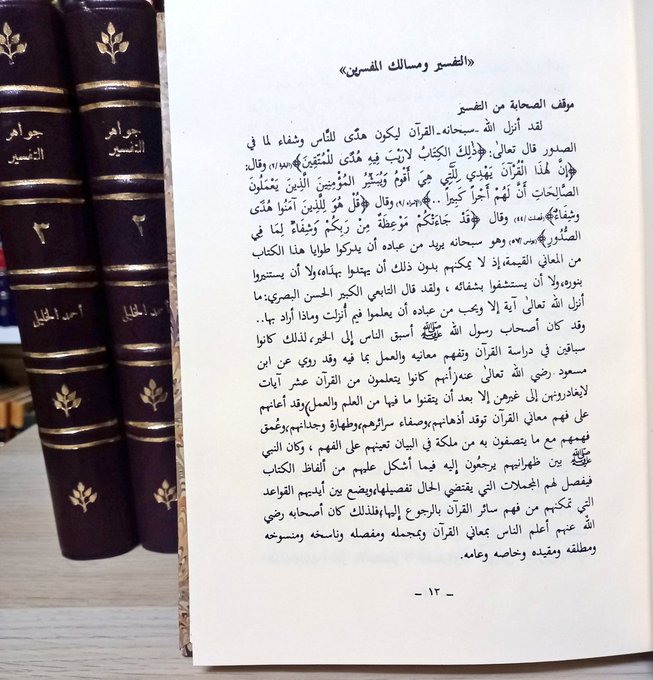 جواهر
التفسير
٣
أحمد الخليلي
جواهر
التفسير
٢
أحمد الخليلي
«التفسير ومسالك المفسرين»
موقف الصحابة من التفسير
لقد أنزل الله ـ سبحانه ـ القرآن ليكون هدًى للنّاس وشفاء لما في
الصدور قال تعالىٰ: ﴿ذٰلِكَ الكِتَابُ لاَرَيْبَ فِيهِ هُدًى لِلْمُتَّقِينَ﴾(البقرة/٢) وقال:
﴿إِنَّ هٰذَا الْقُرْآنَ يَهْدِي لِلَّتِي هِيَ أَقْوَمُ وَيُبَشِّرُ الْمُؤْمِنِينَ الَّذِينَ يَعْمَلُونَ
الصَّالِحَاتِ أَنَّ لَهُمْ أَجْراً كَبِيراً ..﴾(الإسراء/٩) وقال ﴿قُلْ هُوَ لِلَّذِينَ آمَنُوا هُدًى
وَشِفَاءٌ﴾(فصلت/٤٤) وقال ﴿قَدْ جَاءَتْكُمْ مَوْعِظَةٌ مِنْ رَبِّكُمْ وَشِفَاءٌ لِمَا فِي
الصُّدُورِ﴾(يونس/٥٧) وهو سبحانه يريد من عباده أن يدركوا طوايا هذا الكتاب
من المعاني القيمة، إذ لا يمكنهم بدون ذلك أن يهتدوا بهداه، ولا أن يستنيروا
بنوره، ولا أن يستشفوا بشفائه ، ولقد قال التابعي الكبير الحسن البصري: ما
أنزل الله تعالىٰ آية إلا ويحب من عباده أن يعلموا فيم أُنزلت وماذا أراد بها..
وقد كان أصحاب رسول الله ﷺ أسبق الناس إلى الخير، لذلك كانوا
سباقين في دراسة القرآن وتفهم معانيه والعمل بما فيه وقد روي عن ابن
مسعود رضي الله تعالىٰ عنه(أنهم كانوا يتعلمون من القرآن عشر آيات
لايغادرونهن إلى غيرهن إلا بعد أن يتقنوا ما فيها من العلم والعمل)وقد أعانهم
على فهم معاني القرآن توقد أذهانهم، وصفاء سرائرهم، وطهارة وجدانهم، وعُمق
فهمهم مع ما يتصفون به من ملكة في البيان تعينهم على الفهم ، وكان النبي
ﷺ بين ظهرانيهم يرجعُون إليه فيما أشكل عليهم من ألفاظ الكتاب
فيفصل لهم المجملات التي يقتضي الحال تفصيلها، ويضع بين أيديهم القواعد
التي تمكنهم من فهم سائر القرآن بالرجوع إليها، فلذلك كان أصحابه رضي
اللهُ عنهم أعلم الناس بمعاني القرآن وبمجمله ومفصله وناسخه ومنسوخه
ومطلقه ومقيده وخاصه وعامه.
ـ ١٣ ـ